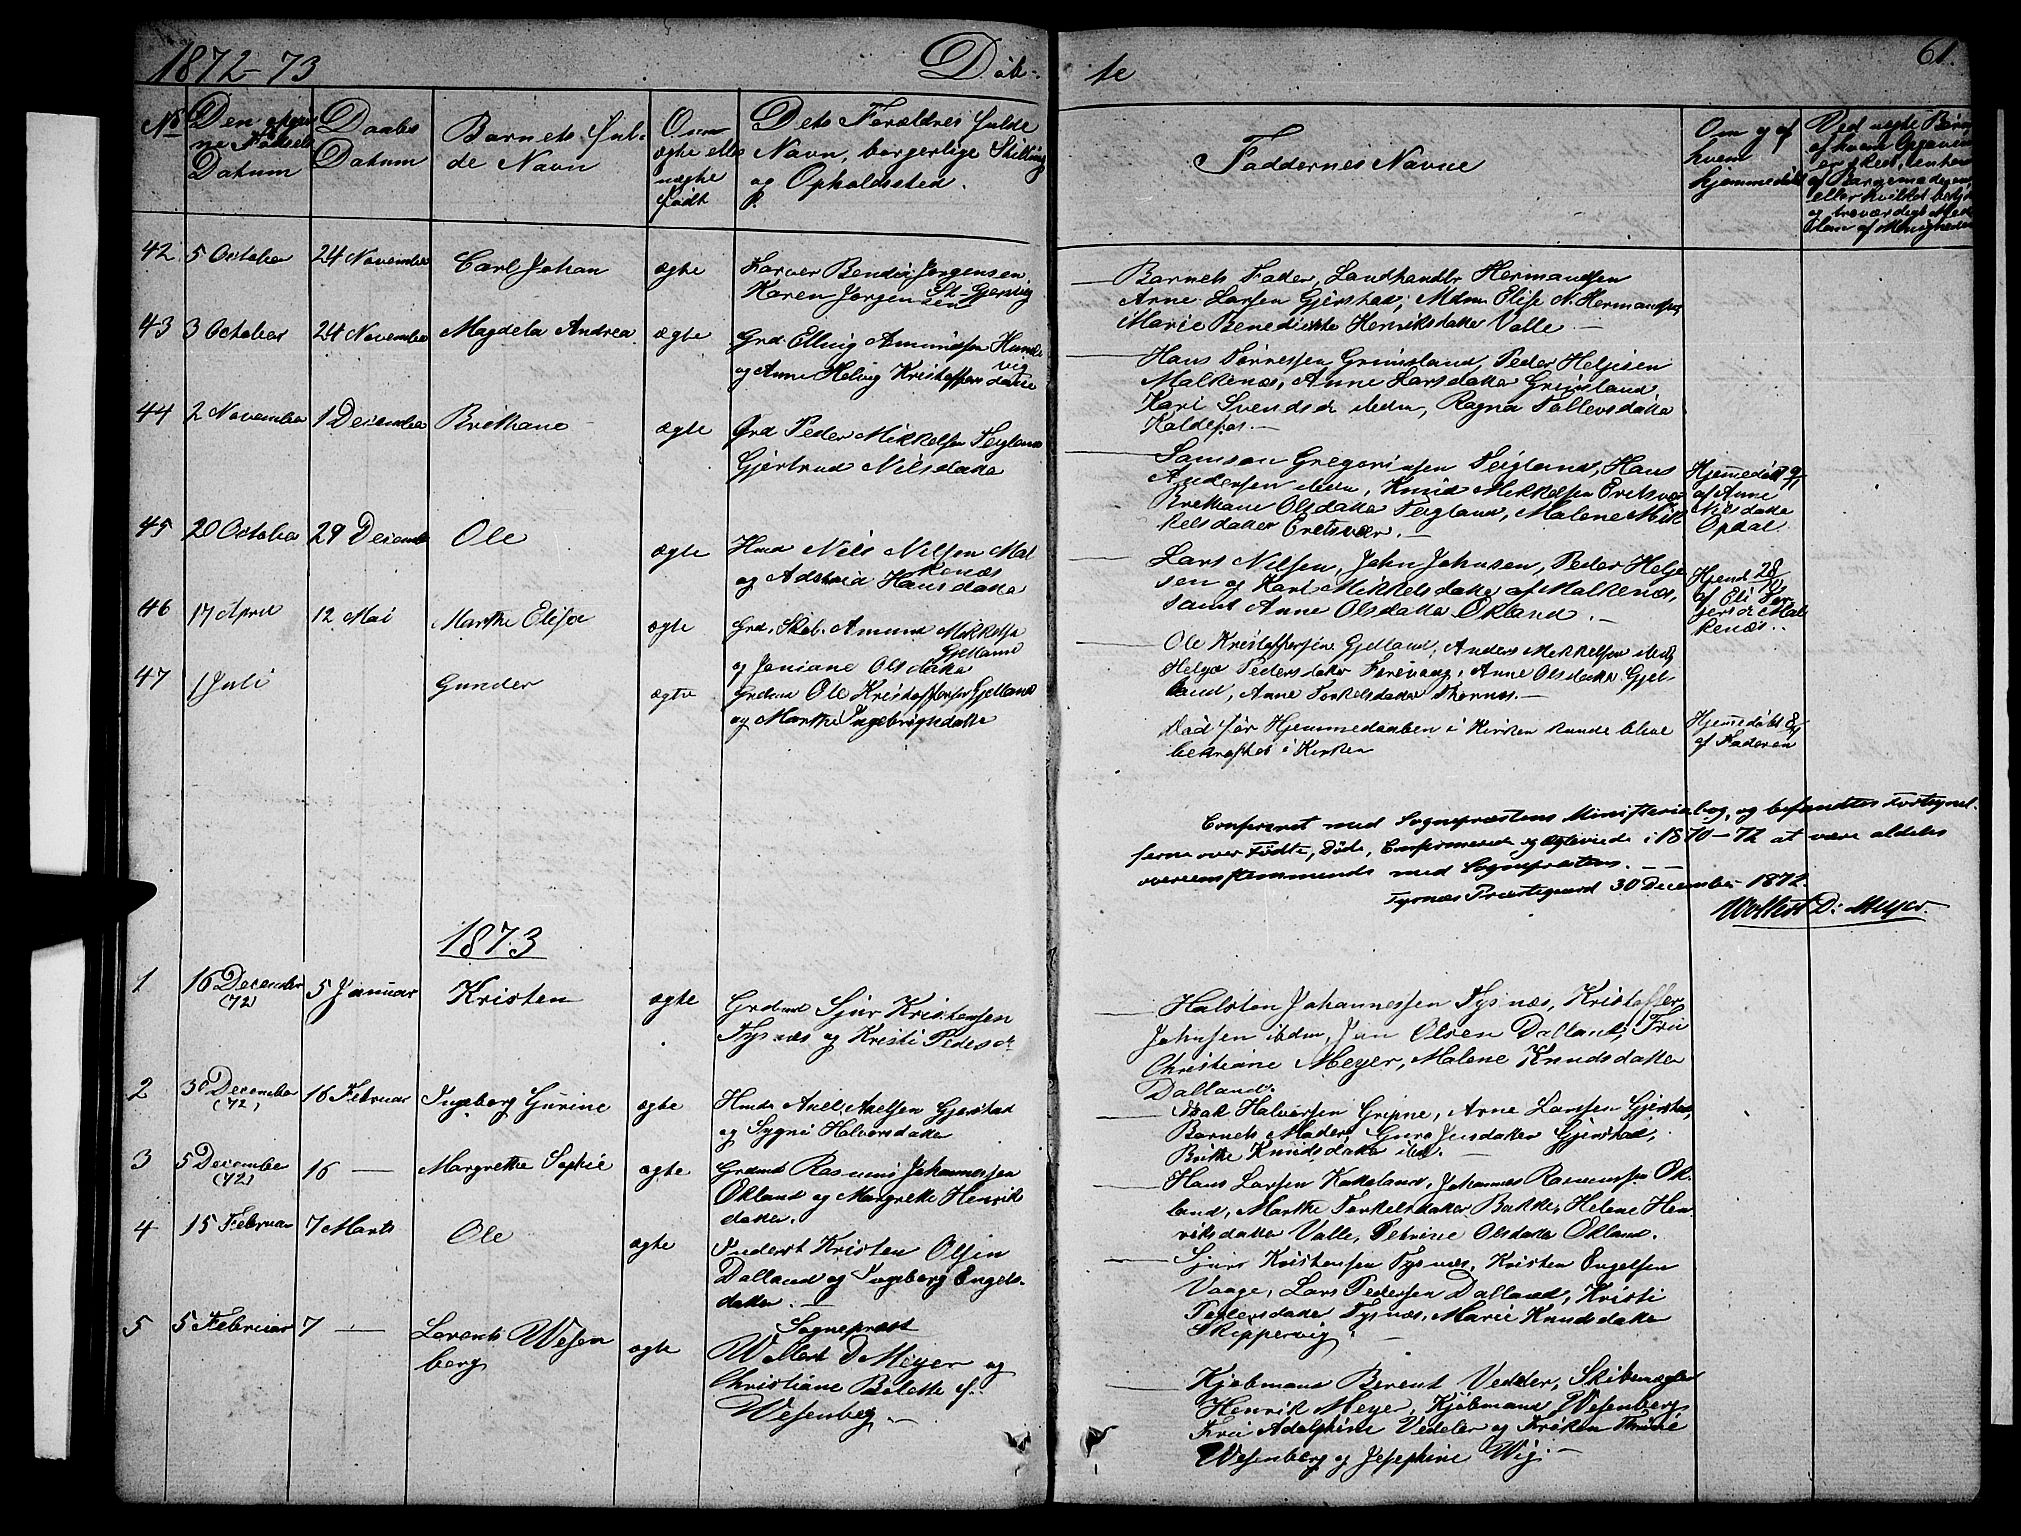 1872-73
Døb-
te
61.
No
Den
ne Fødsels
Datum
Daabs
Datum
Barnets ful-
de Navn
Om
ægte eller
uægte
født
Dets Forældres fulde
Navn, borgerlige Stilling
og Opholdssted.
Faddernes Navne
Om og af
hvem
hjemmedøbt
Ved uægte Børn
af hvem Opgaven
er skeet, enten
af Barnemoderen,
42
5 October
24 November
Carl Johan
ægte
Farver Bendix Jørgensen
Karen Jørgensen
Barnets Fader, Landhandler Hermandsen
Arne Larsen Gjerstad, Mdm Elise N. Hermandsen,
Marie Benedikte Henriksdatter Valle. —
43
3 October
24 November
Magdela Andrea
ægte
Grd Elling Amundsen Hunde
vig
og Anne Helvig Kristoffersdatter
Hans Tørressen Grimsland, Peder Helgesen
Malkenæs, Anne Larsdatter Grimsland
Kari Svendsdr ibidm, Ragna Tollevsdatter
Koldefos. —
44
2 November
1 December
Brethane
ægte
Grd Peder Mikkelsen Teigland
Gjertrud Nilsdatter
Samson Gregoriussen Teigland, Hans
Andersen ibidm, Knud Mikkelsen Eretsvær
Brethane Olsdatter Teigland, Malene Mik
kelsdatter Eretsvær. —
Hjemmedøbt 9/11
af Anne
Nilsdatter
Opdal
45
20 October
29 December
Ole
ægte
Hmd Nils Nilsen Mal
kenæs
og Adshed Hansdatter
Lars Nilsen, John Johnsen, Peder Helge
sen og Kari Mikkelsdatter af Malkenæs,
samt Anne Olsdatter Økland. —
Hjemd 28
af Eli
kenæs.
46
17 April
12 Mai
Marthe Elisa
ægte
Grd. Amund Mikkelsen
Gjelland
og Janiane Olsdatter
Ole Kristoffersen Gjelland, Anders Mikkelsen ibidm
Helga Pedersdatter Færevaag, Anne Olsdatter Gjel
land, Anne Torkelsdatter
47
1 Juli
Gunder
ægte
Grdmd Ole Kristoffersen Gjelland
og Marthe Ingebrigtsdatter
Død før Hjemmedaaben i Kirken kunde blive
bekræftet i Kirken
Hjemmedøbt 8/7
af Faderen
Confereret med Sognepræstens Ministerialbog, og befandtes Fortegnel-
serne over Fødte, Døde, Confirmerede og Egteviede i 1870-72 at være aldeles
overensstemmende med Sognepræstens. —
Tysnæs Præstegaard 30 December 1872.
Wollert D: Meyer.
1873
1
16 December
(72)
5 Januar
Kristen
ægte
Grdmd Sjur Kristensen
Tysnæs og Kristi Pedersdr
Halsten Johannessen Tysnæs, Kristoffer
Johnsen ibidm, Jan Olsen Dalland, Fru
Christiane Meyer, Malene Knudsdatter
Dalland.
2
30 December
(72)
16 Februar
Ingeborg Gurine
ægte
Hmd Axel Axelsen Gjerstad
og Sygni Halvorsdatter
Halvorsen Gripne, Arne Larsen Gjerstad,
Barnets Moder, Guro Jensdatter Gjerstad,
Brithe Knudsdatter ibid. —
3
5 December
(72)
16 —
Margrethe Sophie
ægte
Grdmd Rasmus Johannessen
Økland og Margrethe Henriks
datter.
Hans Larsen Kakeland, Johannes Rasmussen Øk-
land, Marthe Torkelsdatter Bakke, Helene Hen
riksdatter Valle, Petrine Olsdatter Økland.
4
15 Februar
7 Marts
Ole
ægte
Inderst Kristen Olsen
Dalland og Ingeborg Engels-
datter. —
Sjur Kristensen Tysnæs, Kristen Engelsen
Vaage, Lars Pedersen Dalland, Kristi
Pedersdatter Tysnæs, Marie Knudsdatter
Skippervig.
5
5 Februar
7 —
Lorents Wesen
berg
ægte
Sognepræst
Wollert D Meyer og
Christiane Bolette f.
Wesenberg. —
Kjøbmand Berent Vedeler, Skibsmægler
Henrik Meyer, Kjøbmand Wesenberg
Fru Adolphine Vedeler og Frøken Thrine
Wesenberg og Josephine Wig. —